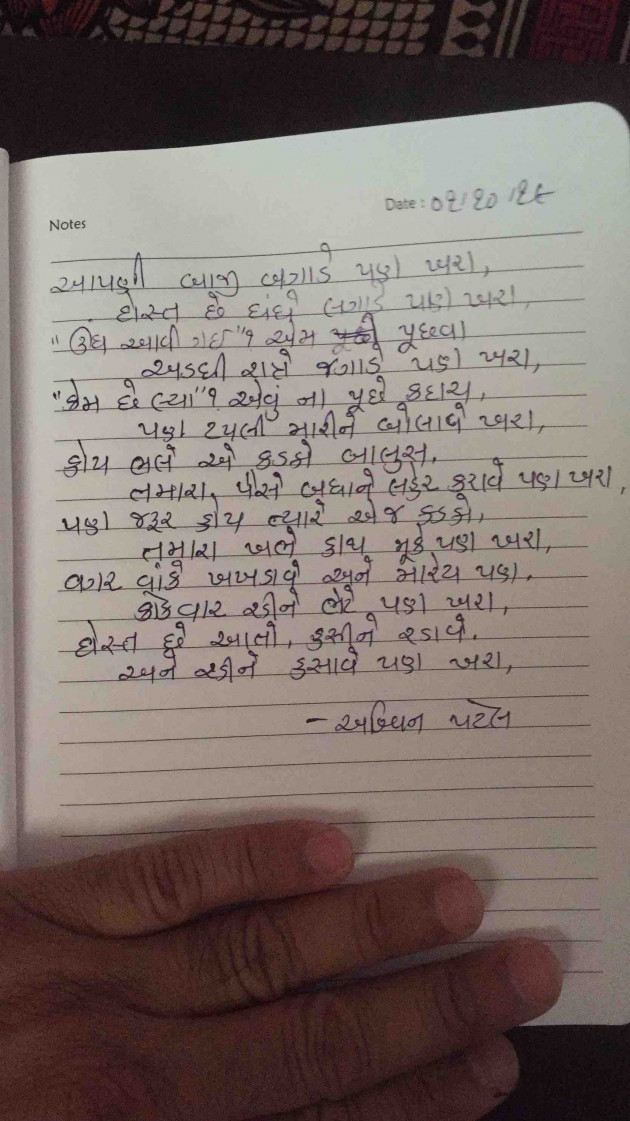 Notes
Date: ०९/१०/१८
આપણી બાજી બગાડે પણ ખરા,
દોસ્ત છે ધંધે લગાડે પણ ખરા,
"ઊંઘ આવી ગઈ"? એમ પૂછવા
અડધી રાત્રે જગાડે પણ ખરા,
"કેમ છે લ્યા"? એવું ના પૂછે કદાચ,
પણ ટપલી મારીને બોલાવે ખરા,
હોય ભલે એ કડકો બાલુસ,
તમારા પૈસે બધાને લહેર કરાવે પણ ખરા,
પણ જરૂર હોય ત્યારે એજ કડકો,
તમારા ખભે હાથ મૂકે પણ ખરા,
વગર વાંકે ખખડાવે અને મારેય પણ,
કોકવાર રડીને ભેટે પણ ખરા,
દોસ્ત છે આતો, હસીને રડાવે,
અને રડીને હસાવે પણ ખરા,
- અશ્વિન પટેલ